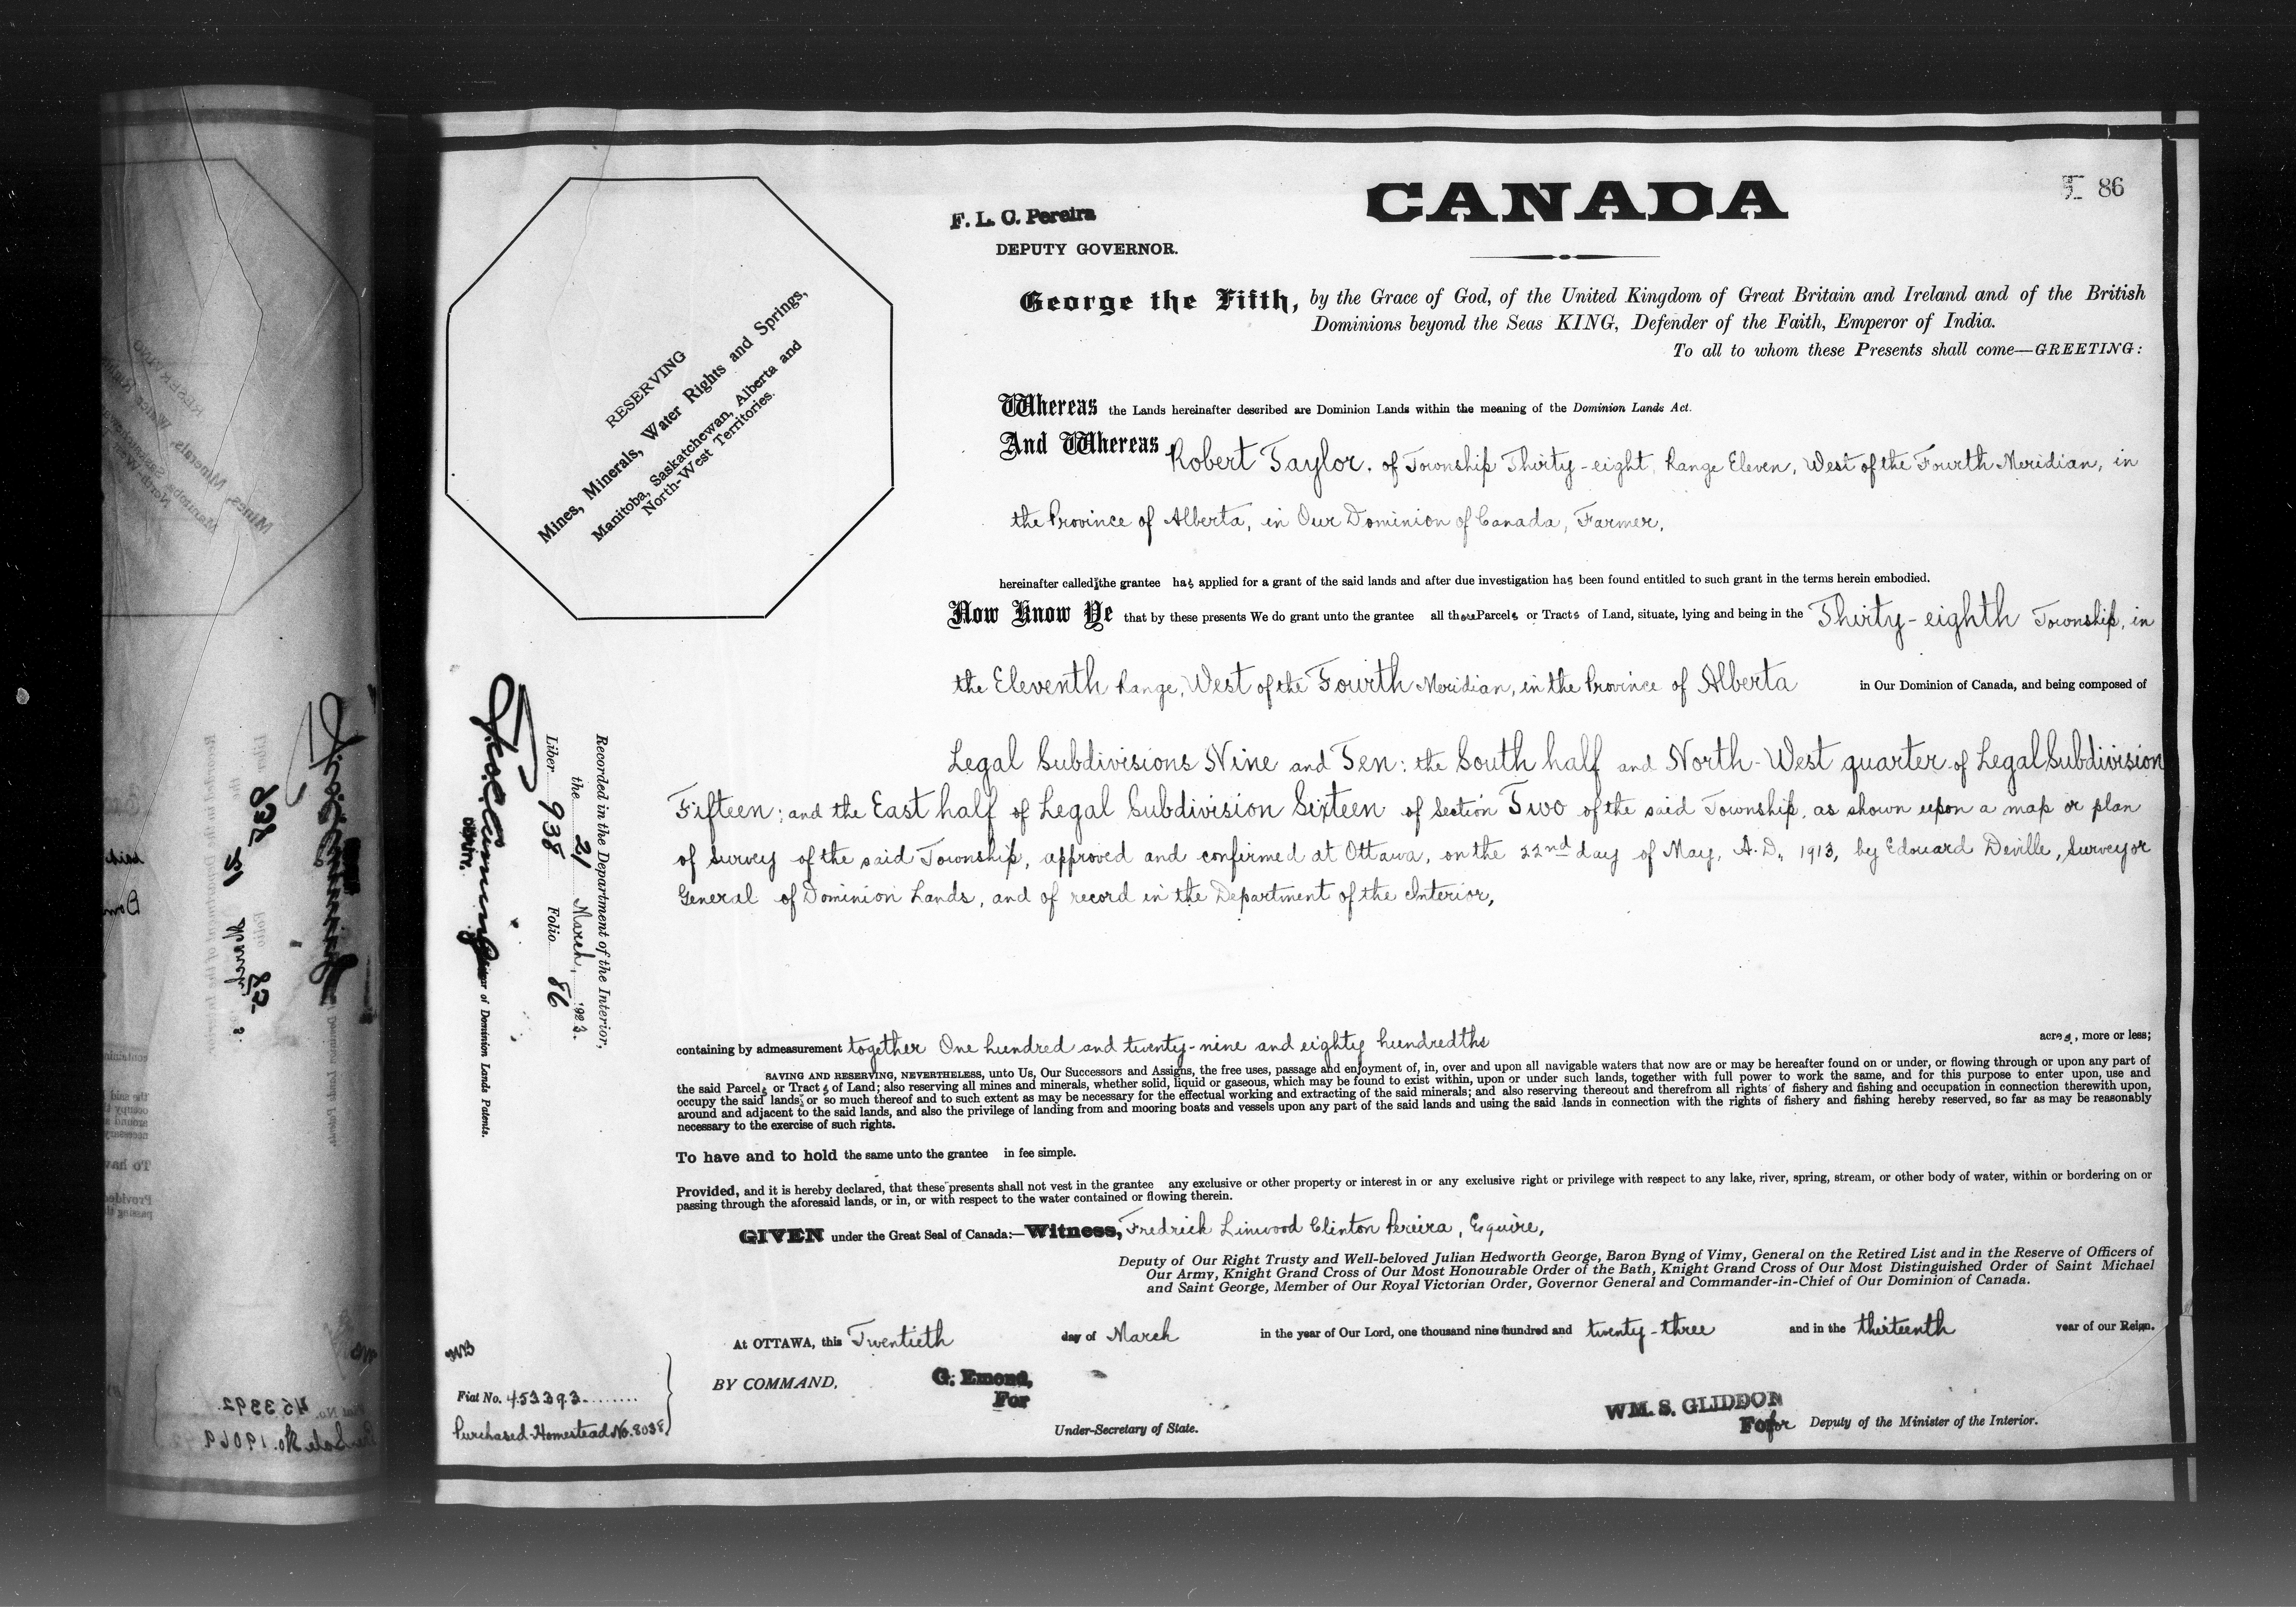 CANADA
86
F. L. C. Pereira
DEPUTY GOVERNOR.
George the Fifth, by the Grace of God, of the United Kingdom of Great Britain and Ireland and of the British
Dominions beyond the Seas KING, Defender of the Faith, Emperor of India.
To all to whom these Presents shall come—GREETING:
RESERVING
Mines, Minerals, Water Rights and Springs,
Manitoba, Saskatchewan, Alberta and
North-West Territories.
Whereas the Lands hereinafter described are Dominion Lands within the meaning of the Dominion Lands Act.
And Whereas Robert Taylor, of Township Thirty-eight, Range Eleven, West of the Fourth Meridian, in
the Province of Alberta, in Our Dominion of Canada, Farmer,
hereinafter called the grantee has applied for a grant of the said lands and after due investigation has been found entitled to such grant in the terms herein embodied.
Now Know Ye that by these presents We do grant unto the grantee all those Parcels or Tracts of Land, situate, lying and being in the Thirty-eighth Township, in
the Eleventh Range, West of the Fourth Meridian, in the Province of Alberta in Our Dominion of Canada, and being composed of
Legal Subdivisions Nine and Ten: the South half and North-West quarter of Legal Subdivision
Fifteen; and the East half of Legal Subdivision Sixteen of Section Two of the said Township, as shown upon a map or plan
of survey of the said Township, approved and confirmed at Ottawa, on the 22nd day of May, A.D. 1913, by Edouard Deville, Surveyor
General of Dominion Lands, and of record in the Department of the Interior,
Recorded in the Department of the Interior,
the 21 March, 1923.
Liber 938 Folio 86
DEPUTY
of Dominion Lands Patents.
containing by admeasurement together One hundred and twenty-nine and eighty hundredths acres, more or less;
SAVING AND RESERVING, NEVERTHELESS, unto Us, Our Successors and Assigns, the free uses, passage and enjoyment of, in, over and upon all navigable waters that now are or may be hereafter found on or under, or flowing through or upon any part of
the said Parcels or Tracts of Land; also reserving all mines and minerals, whether solid, liquid or gaseous, which may be found to exist within, upon or under such lands, together with full power to work the same, and for this purpose to enter upon, use and
occupy the said lands, or so much thereof and to such extent as may be necessary for the effectual working and extracting of the said minerals; and also reserving thereout and therefrom all rights of fishery and fishing and occupation in connection therewith upon,
around and adjacent to the said lands, and also the privilege of landing from and mooring boats and vessels upon any part of the said lands and using the said lands in connection with the rights of fishery and fishing hereby reserved, so far as may be reasonably
necessary to the exercise of such rights.
To have and to hold the same unto the grantee in fee simple.
Provided, and it is hereby declared, that these presents shall not vest in the grantee any exclusive or other property or interest in or any exclusive right or privilege with respect to any lake, river, spring, stream, or other body of water, within or bordering on or
passing through the aforesaid lands, or in, or with respect to the water contained or flowing therein.
GIVEN under the Great Seal of Canada:—Witness, Fredrick Linwood Clinton Pereira, Esquire,
Deputy of Our Right Trusty and Well-beloved Julian Hedworth George, Baron Byng of Vimy, General on the Retired List and in the Reserve of Officers of
Our Army, Knight Grand Cross of Our Most Honourable Order of the Bath, Knight Grand Cross of Our Most Distinguished Order of Saint Michael
and Saint George, Member of Our Royal Victorian Order, Governor General and Commander-in-Chief of Our Dominion of Canada.
At OTTAWA, this Twentieth day of March in the year of Our Lord, one thousand nine hundred and twenty-three and in the thirteenth year of our Reign.
BY COMMAND,
G. Emond,
For
Under-Secretary of State.
WM. S. GLIDDON
For for Deputy of the Minister of the Interior.
Fiat No. 453393
Purchased Homestead No. 8038